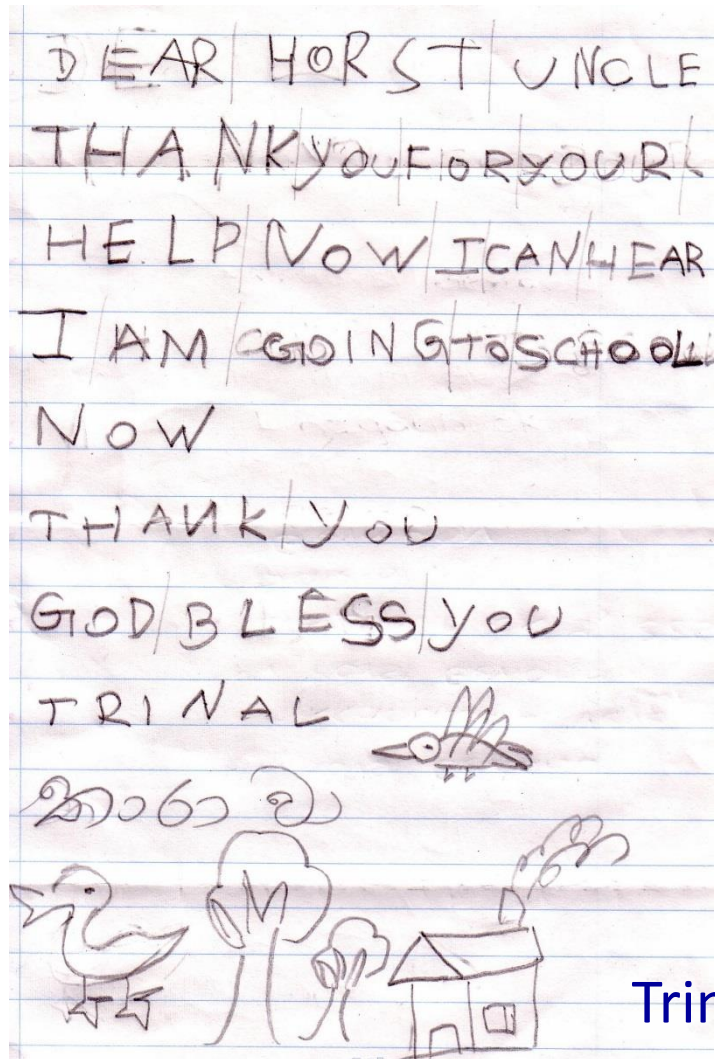 DEAR HORST UNCLE
THANK YOU FOR YOUR
HELP NOW I CAN HEAR
I AM GOING TO SCHOOL
NOW
THANK YOU
GOD BLESS YOU
TRINAL
තාරාවා